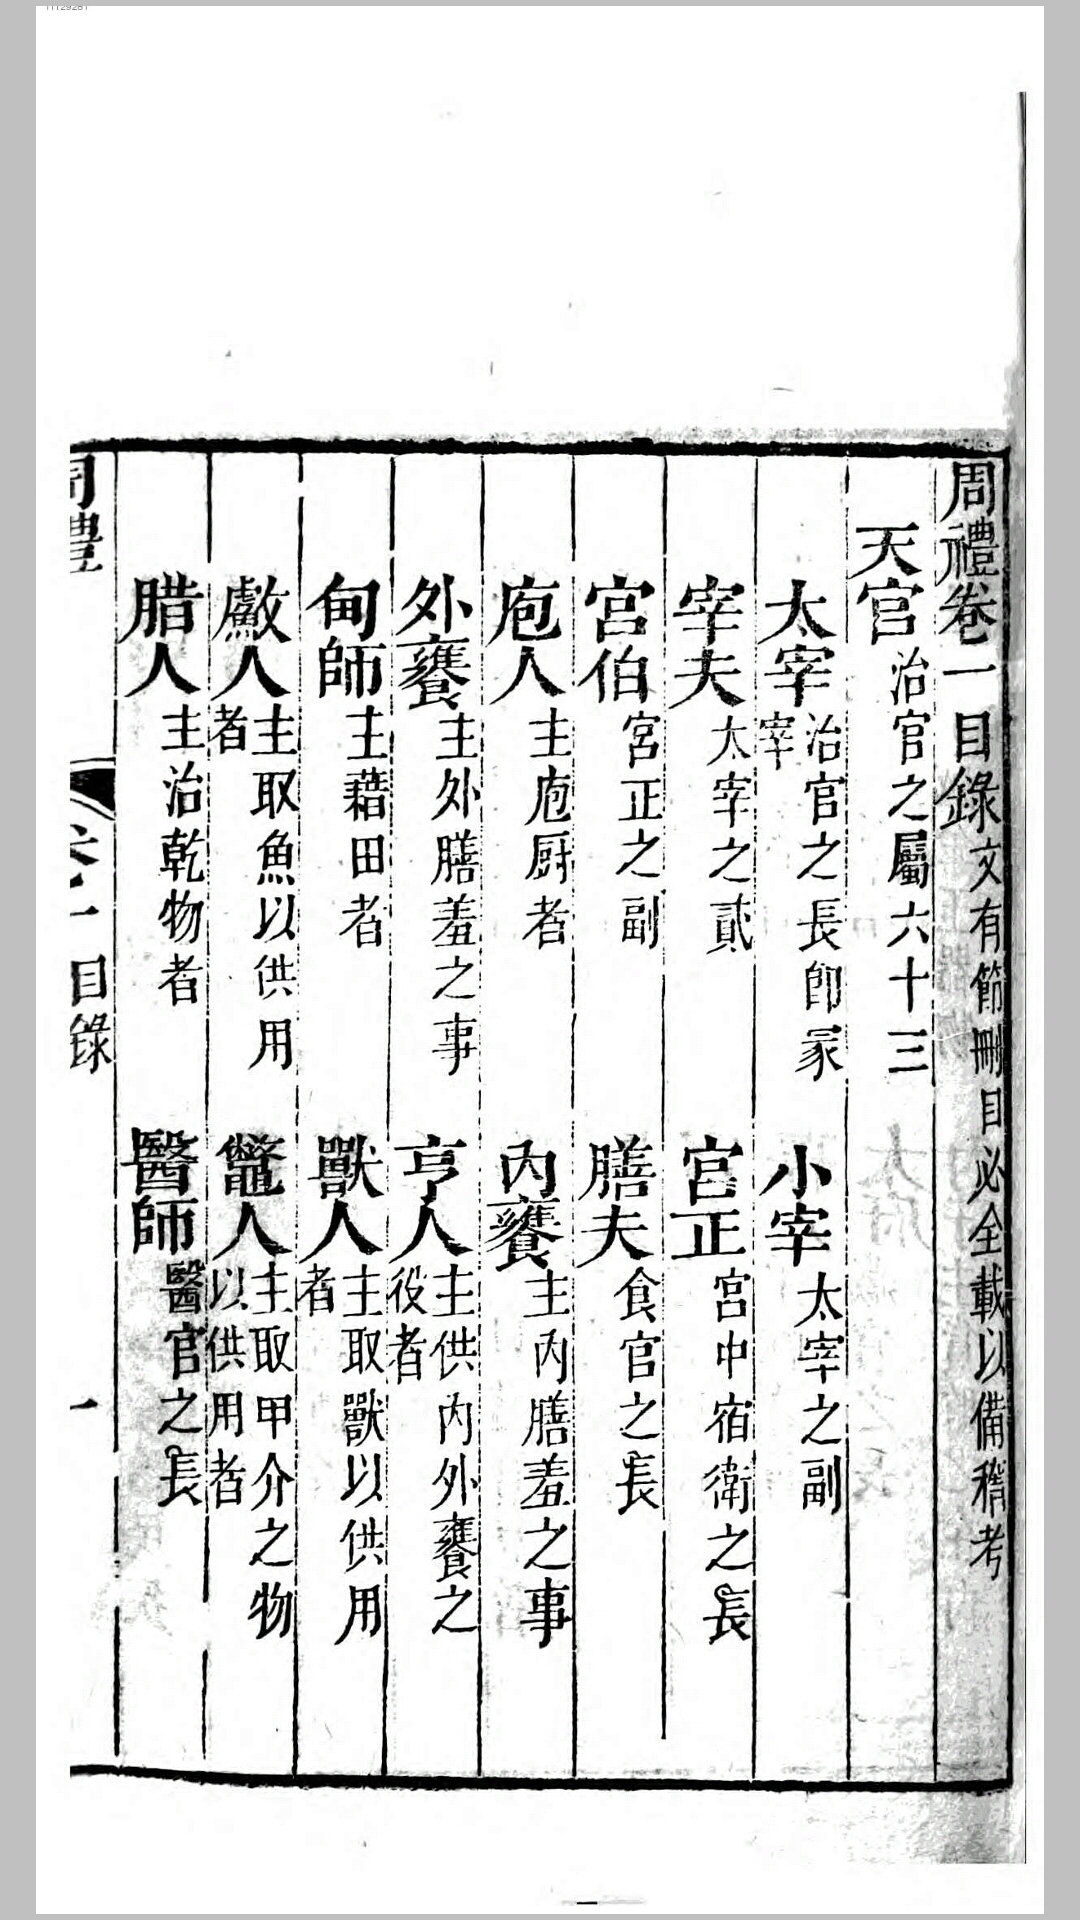 周禮卷一目錄文有節刪目必全載以備稽考
天官治官之屬六十三
太宰治官之長卽冡宰
小宰太宰之副
宰夫太宰之貳
宮正宮中宿衛之長
宮伯宮正之副
膳夫食官之長
庖人主庖厨者
內饔主內膳羞之事
外饔主外膳羞之事
亨人主供內外饔之役者
甸師主藉田者
獸人主取獸以供用者
䱷人主取魚以供用者
鼈人主取甲介之物以供用者
腊人主治乾物者
醫師醫官之長
周禮
卷一目錄
一